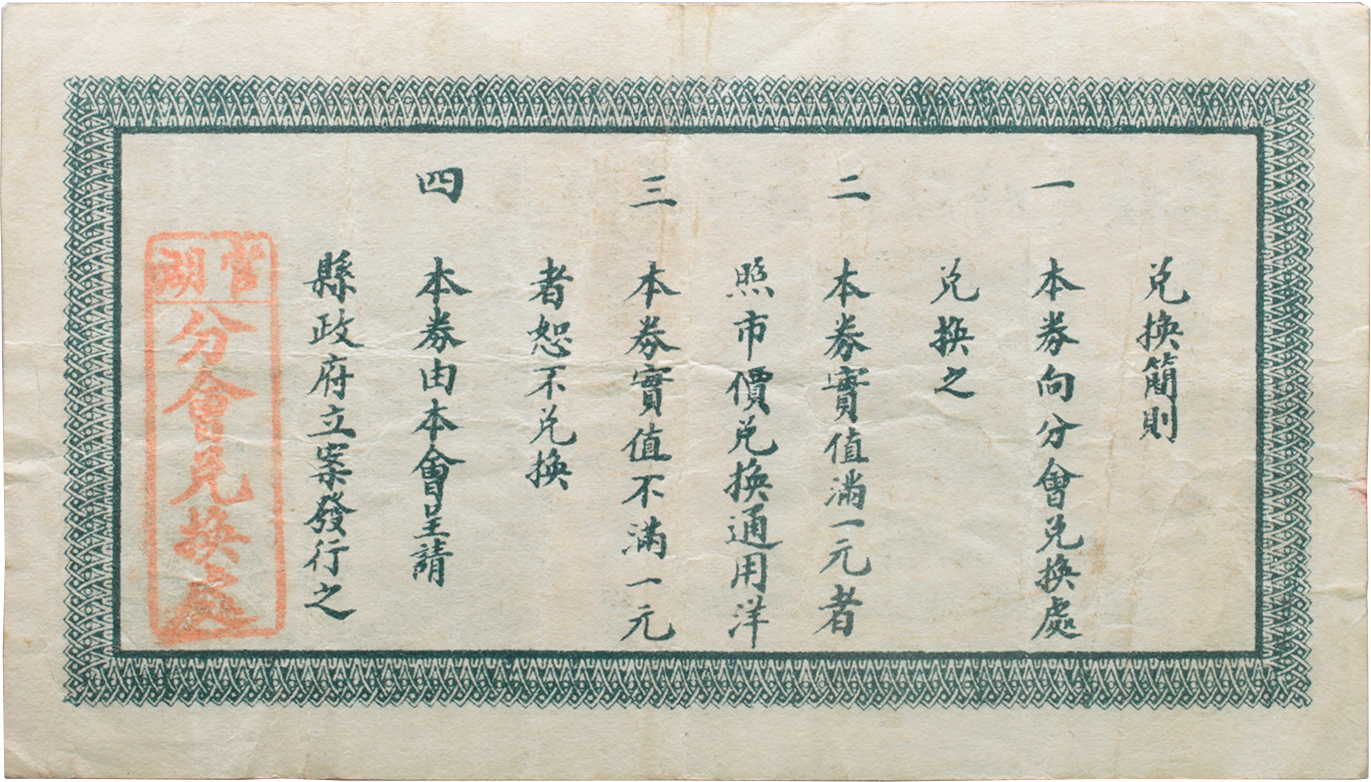 兑換簡則
一 本券向分會兑換處
兑換之
二 本券實值滿一元者
照市價兑換通用洋
三 本券實值不滿一元
者恕不兑換
四 本券由本會呈請
縣政府立案發行之
湖
分會兑換處